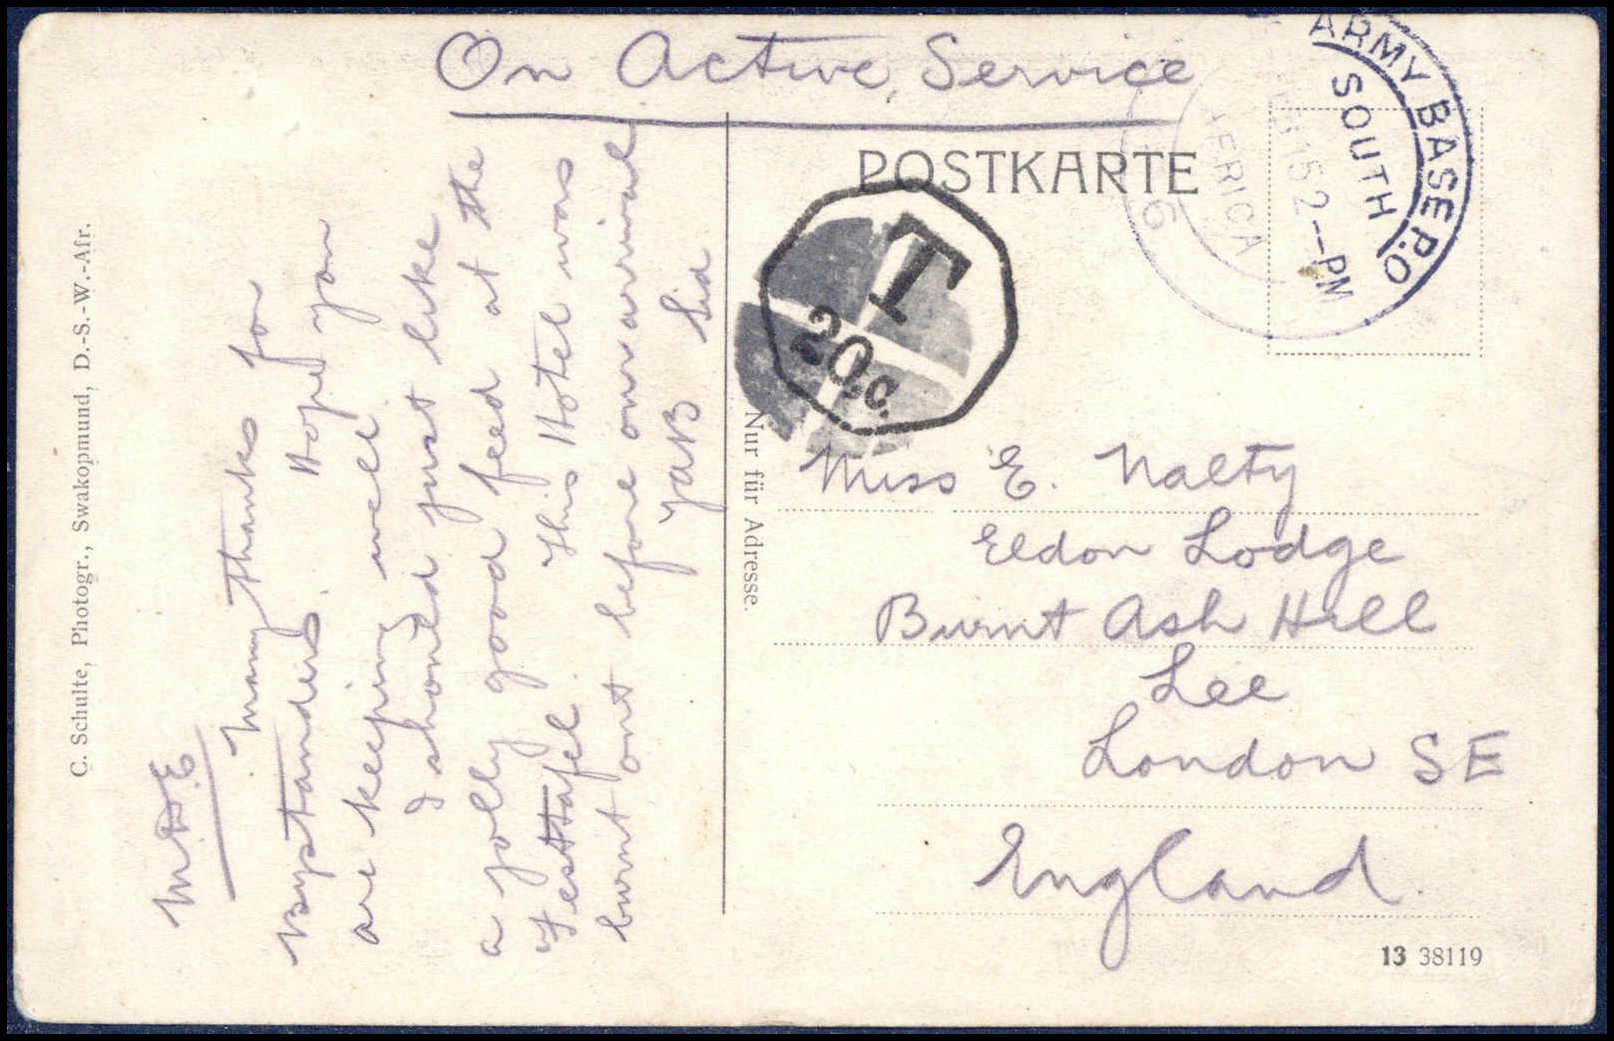 On Active Service
POSTKARTE
ARMY BASE P.O
SOUTH
AFRICA
15 2--PM
6
T
20.c.
C. Schulte, Photogr., Swakopmund, D.-S.-W.-Afr.
Many thanks for
Bystanders. Hope you
are keeping well
I should just like
a jolly good feed at the
Festtafel. This Hotel was
burnt out before our arrival
Sid
Nur für Adresse.
Miss E. Nalty
Eldon Lodge
Burnt Ash Hill
Lee
London SE
England.
13 38119